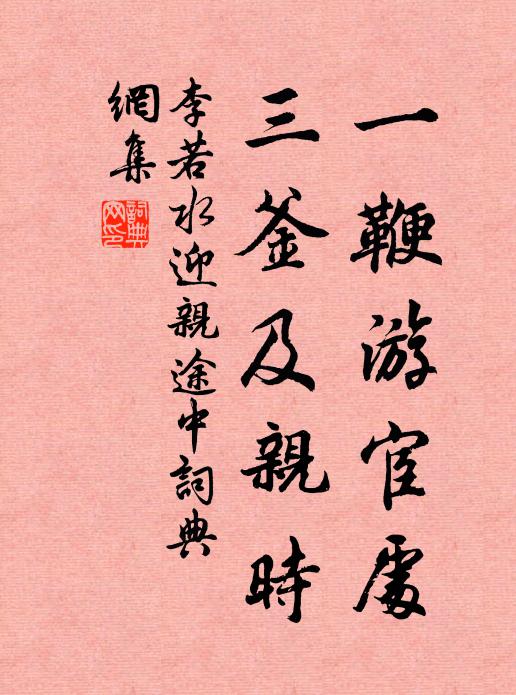 一鞭游宦處
三釜及親時
李若水迎親途中詞典
網集
詞典網印